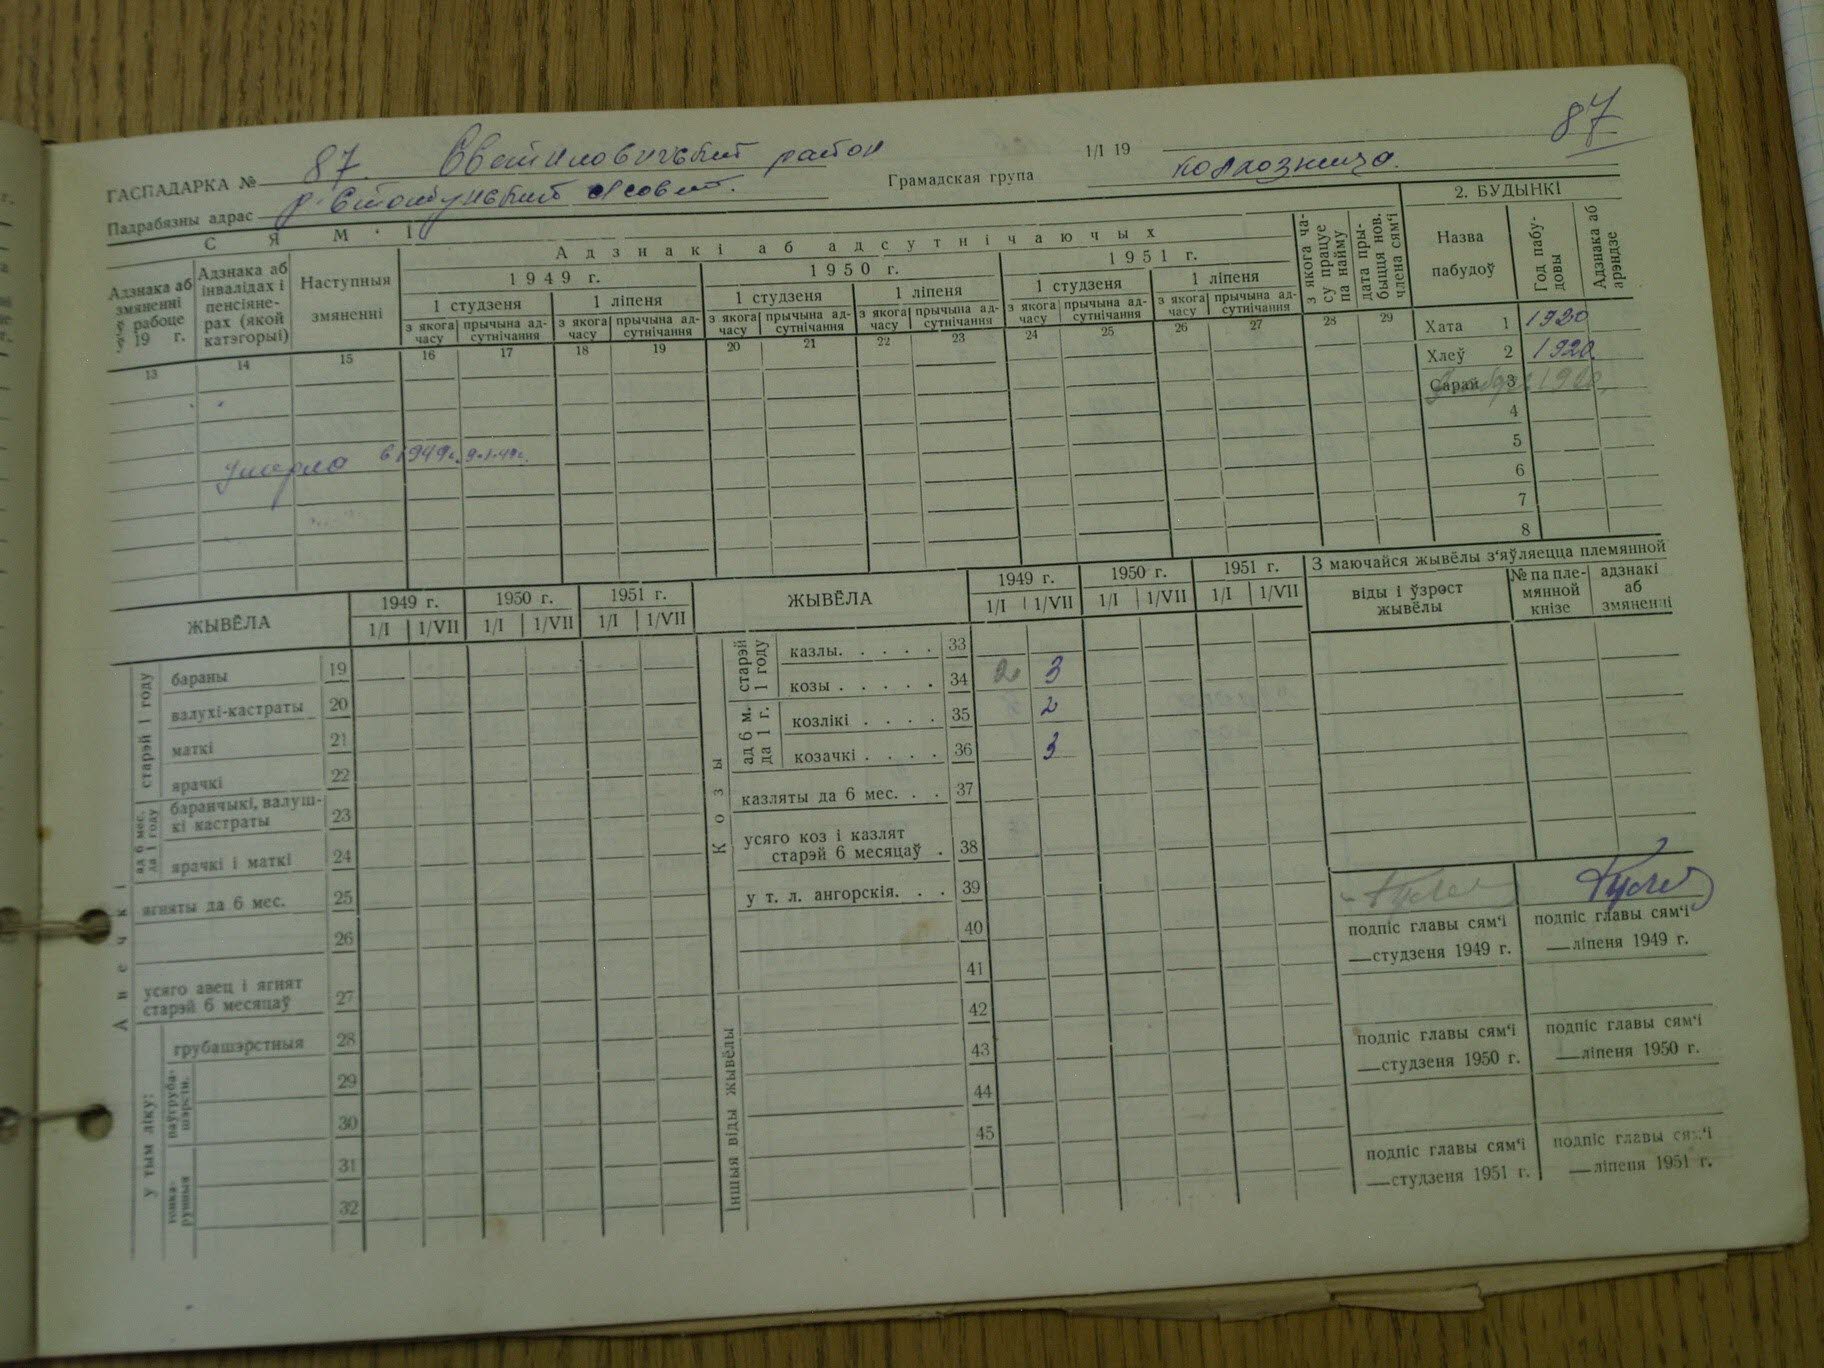 87
ГАСПАДАРКА № 87. район 1/I 19
Падрабязны адрас
Грамадская група колхозница.
СЯМ'І
Адзнакі аб адсутнічаючых
2. БУДЫНКІ
1949 г. 1950 г. 1951 г.
1 студзеня 1 ліпеня 1 студзеня 1 ліпеня 1 студзеня 1 ліпеня
Адзнака аб змяненні ў рабоце ў 19 г.
Адзнака аб інвалідах і пенсіяне-рах (якой катэгорыі)
Наступныя змяненні
з якога часу прычына ад-сутнічання з якога часу прычына ад-сутнічання з якога часу прычына ад-сутнічання з якога часу прычына ад-сутнічання з якога часу прычына ад-сутнічання з якога часу прычына ад-сутнічання
з якога ча-су працуе па найму
дата пры-быцця нов. члена сям'і
Назва пабудоў
Год пабу-довы
Адзнака аб арэндзе
13 14 15 16 17 18 19 20 21 22 23 24 25 26 27 28 29
Хата 1 1920
Хлеў 2 1920
Сарай 3
4
5
6
7
8
умерла в 1949г. 9.1.49г.
ЖЫВЁЛА
1949 г. 1950 г. 1951 г.
1/I 1/VII 1/I 1/VII 1/I 1/VII
Авечкі
старэй 1 году
бараны 19
валухі-кастраты 20
маткі 21
ярачкі 22
ад 6 мес. да 1 году
баранчыкі, валуш-кі кастраты 23
ярачкі і маткі 24
ягняты да 6 мес. 25
26
усяго авец і ягнят старэй 6 месяцаў 27
у тым ліку:
грубашэрстныя 28
паўгруба-шэрстн.
29
30
тонка-рунныя
31
32
ЖЫВЁЛА
1949 г. 1950 г. 1951 г.
1/I 1/VII 1/I 1/VII 1/I 1/VII
Козы
старэй 1 году
казлы. . . . . 33
козы . . . . . 34 2 3
ад 6 м. да 1 г.
козлікі . . . . 35 2
козачкі . . . . 36 3
казляты да 6 мес. . . 37
усяго коз і казлят
старэй 6 месяцаў . 38
у т. л. ангорскія. . . 39
40
41
Іншыя віды жывёлы
42
43
44
45
З маючайся жывёлы з'яўляецца племянной
віды і ўзрост жывёлы
№ па пле-мянной кнізе
адзнакі аб змяненні
подпіс главы сям'і
—студзеня 1949 г.
подпіс главы сям'і
—ліпеня 1949 г.
подпіс главы сям'і
—студзеня 1950 г.
подпіс главы сям'і
—ліпеня 1950 г.
подпіс главы сям'і
—студзеня 1951 г.
подпіс главы сям'і
—ліпеня 1951 г.